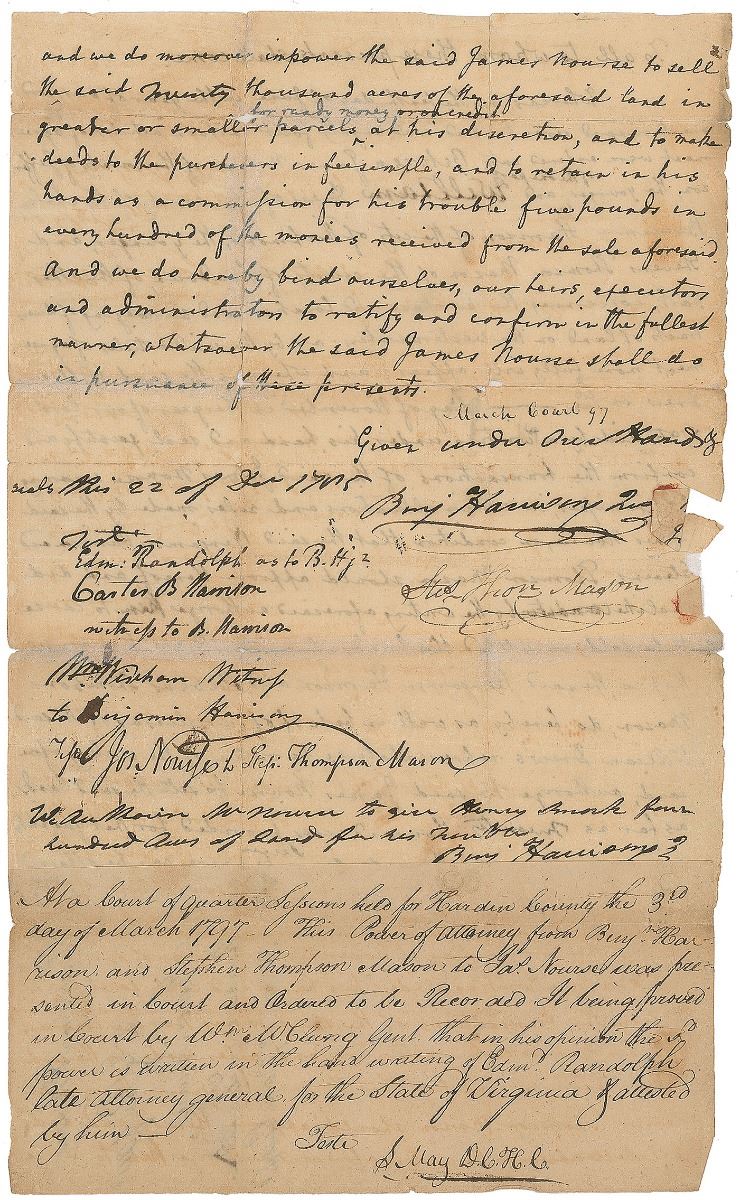 and we do moreover impower the said James Nourse to sell
the said twenty thousand acres of the aforesaid land in
for ready money or on credit
greater or smaller parcels, at his discretion, and to make
deeds to the purchasers in fee simple, and to retain in his
hands as a commission for his trouble five pounds in
every hundred of the monies received from the sale aforesaid.
And we do hereby bind ourselves, our heirs, executors
and administrators to ratify and confirm in the fullest
manner, whatsoever the said James Nourse shall do
in pursuance of these presents.
March Court 97
Given under Our Hands &
seals this 22 of Dec 1785
Benj Harrison Jun
Test
Edm: Randolph as to B. H jr
Carter B Harrison
witness to B. Harrison
Stes Thom Mason
Wm Wickham Witness
to Benjamin Harrison
Teste Jos Nourse to Step: Thompson Mason
We Authorise Mr Nourse to give Henry four
hundred Acres of Land for his
Benj Harrison J
At a Court of quarter Sessions held for Hardin County the 3rd
day of March 1797 - This Power of Attorney from Benjn Har-
rison and Stephen Thompson Mason to Jas Nourse was pre-
sented in Court and Ordered to be Recorded It being proved
in Court by Wm McClung Gent. that in his opinion the sd
power is written in the hand writing of Edmd Randolph
late Attorney general for the State of Virginia & attested
by him —
Teste
S May D. C. H. C.